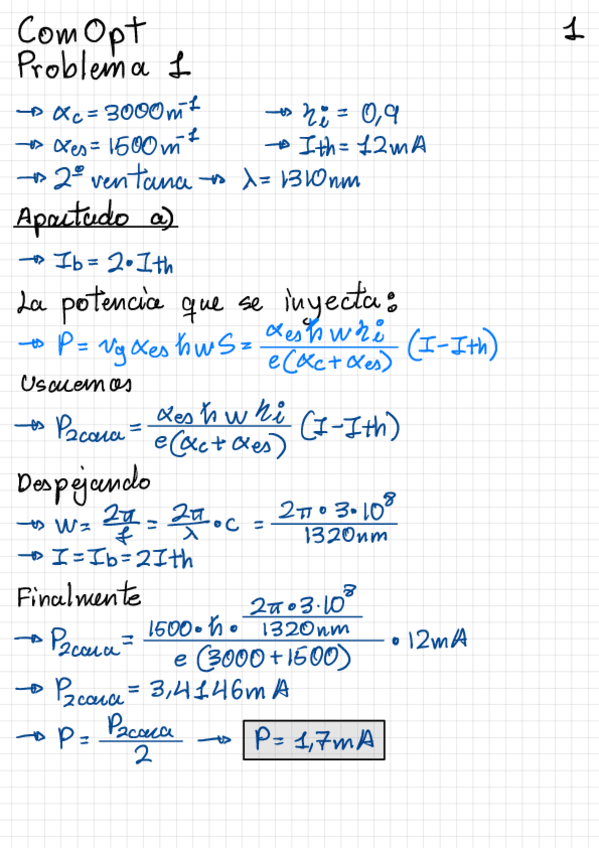 ComOpt 1
Problema 1
→ αc = 3000m⁻¹ → ηi = 0,9
→ αes = 1500m⁻¹ → Ith = 12mA
→ 2ª ventana → λ = 1310nm
Apartado a)
→ Ib = 2·Ith
La potencia que se inyecta:
→ P = vg αes ħ w S = (αes ħ w ηi)/(e(αc + αes)) (I - Ith)
Usaremos
→ P2cara = (αes ħ w ηi)/(e(αc + αes)) (I - Ith)
Despejando
→ w = 2π/f = 2π/λ · c = (2π · 3·10⁸)/(1320nm)
→ I = Ib = 2Ith
Finalmente
→ P2cara = (1500 · ħ · (2π · 3·10⁸)/(1320nm))/(e (3000 + 1500)) · 12mA
→ P2cara = 3,4146mA
→ P = P2cara/2 → P = 1,7mA